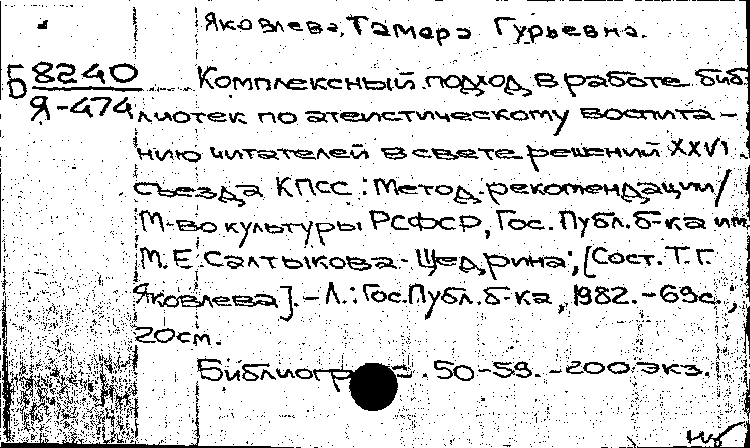 Яковлева, Тамара Гурьевна.
Б 8240
Я-474
Комплексный подход в работе биб
лиотек по атеистическому воспита-
нию читателей в свете решений XXVI
съезда КПСС : Метод. рекомендации/
М-во культуры РСФСР, Гос. Публ. б-ка им.
М. Е. Салтыкова-Щедрина; [Сост. Т. Г.
Яковлева]. - Л. : Гос. Публ. б-ка, 1982. - 69с. ;
20см.
50-59. - 200 экз.